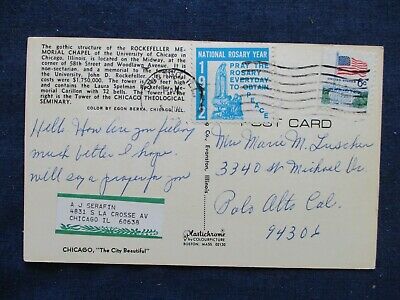 The gothic structure of the ROCKEFELLER ME-
MORIAL CHAPEL of the University of Chicago in
Chicago, Illinois, is located on the Midway, at the
corner of 59th Street and Woodlawn Avenue. It is
non-sectarian, and a memorial to the donor of
the University, John D. Rockefeller. Its
costs were $1,750,000. The tower is 207 feet high
and contains the Laura Spelman Rockefeller Me-
morial Carillon with 72 bells. The tower at the
right is the Tower of the CHICAGO THEOLOGICAL
SEMINARY.
COLOR BY EGON BERKA, CHICAGO, ILL.
NATIONAL ROSARY YEAR
1972
PRAY THE
ROSARY
EVERYDAY
TO OBTAIN
PEACE
6c
POST CARD
Evanston, Illinois
Hello. How are you feeling
much better I hope
will say a prayer for you
Mrs Marie M.
3340 St Michael Dr
Palo Alto Cal.
94306
A J SERAFIN
4831 S LA CROSSE AV
CHICAGO IL 60638
CHICAGO, "The City Beautiful"
Plastichrome
BY COLOURPICTURE
BOSTON, MASS. 02130